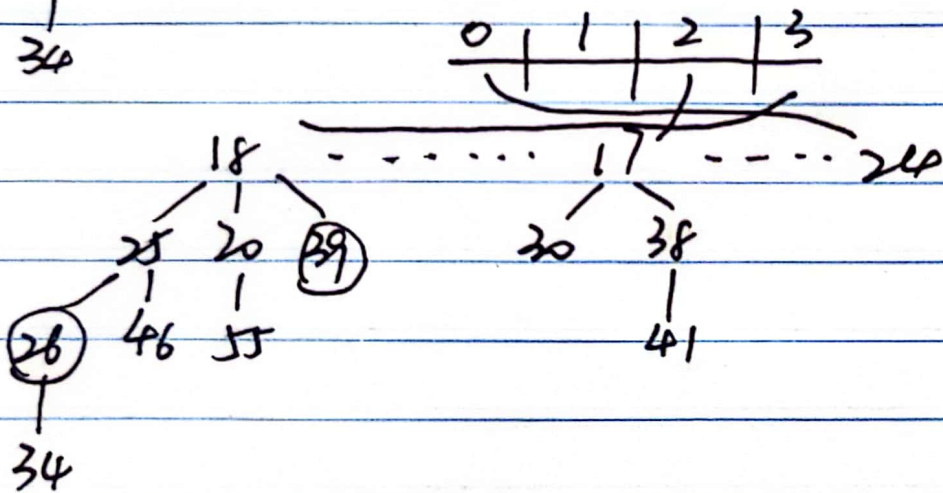 34
0 | 1 | 2 | 3
18 ----- 17 ---- 24
25 20 39 30 38
26 46 55 41
34